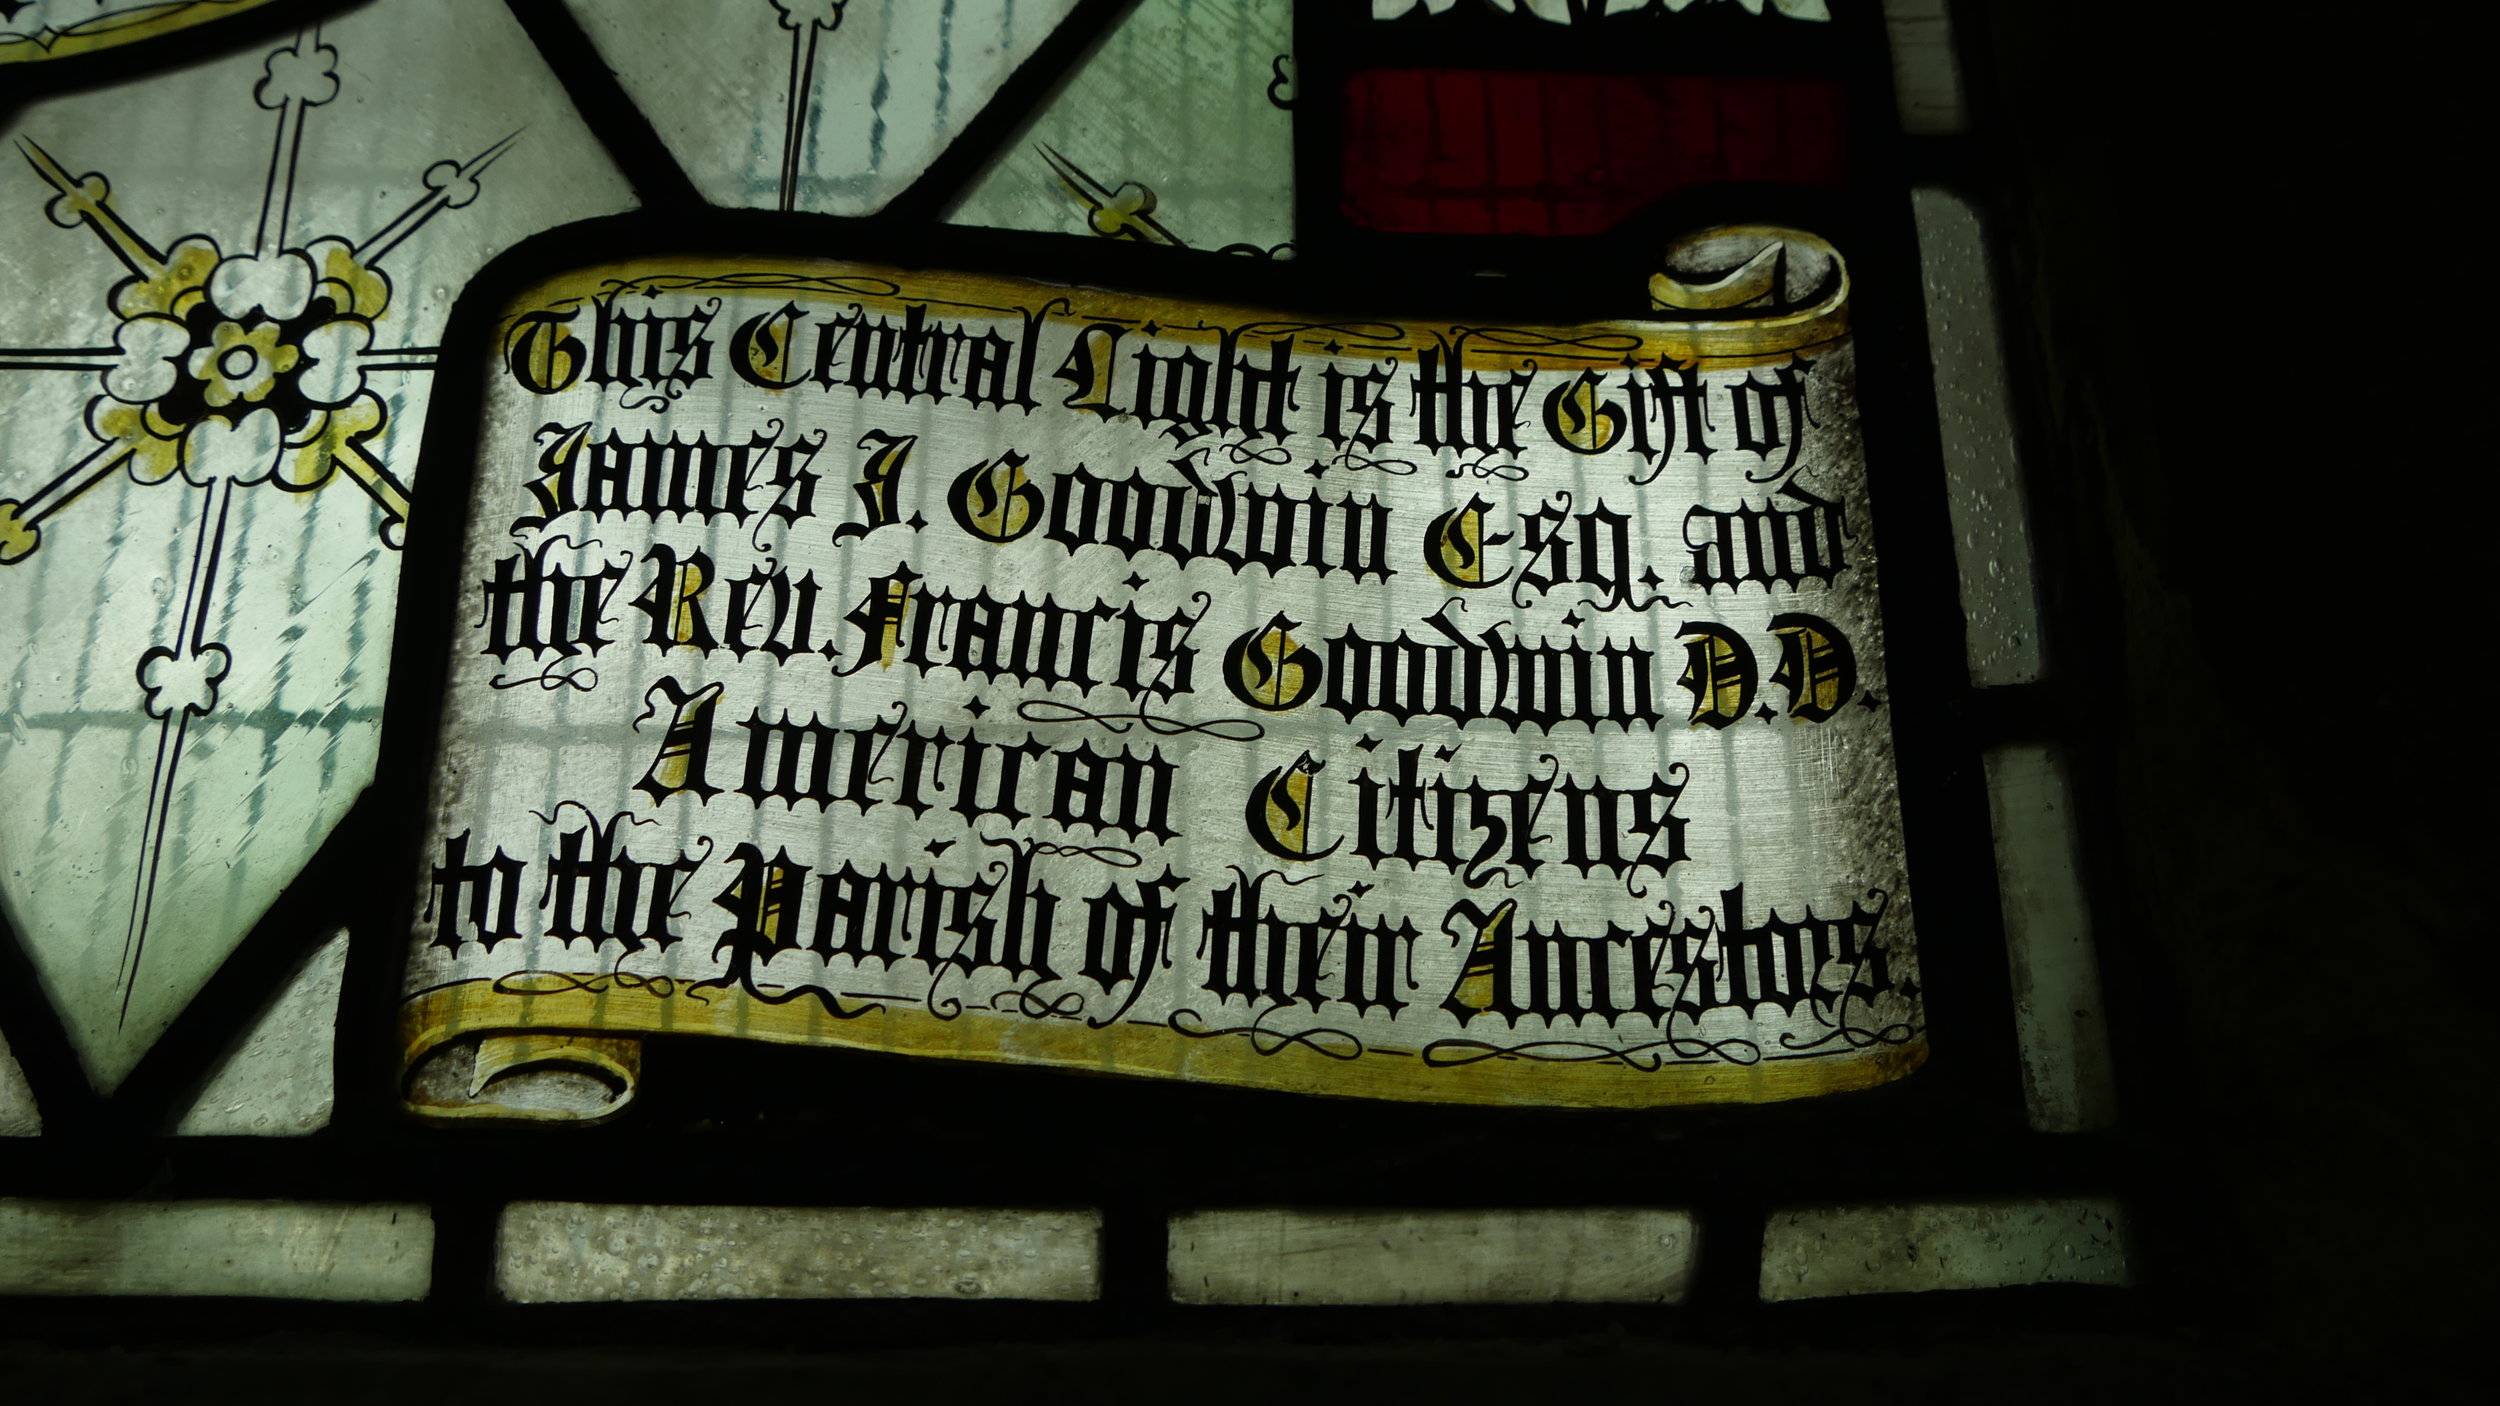 This Central Light is the Gift of
James J. Goodwin Esq. and
the Rev. Francis Goodwin D.D.
American Citizens
to the Parish of their Ancestors.